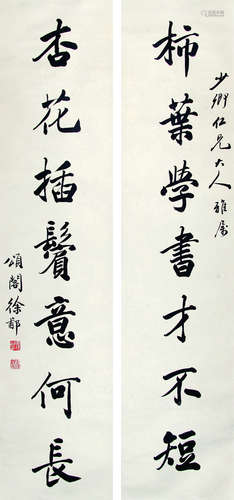 少卿仁兄大人雅属
柿葉學書才不短
杏花插鬢意何長
頌閣徐郙